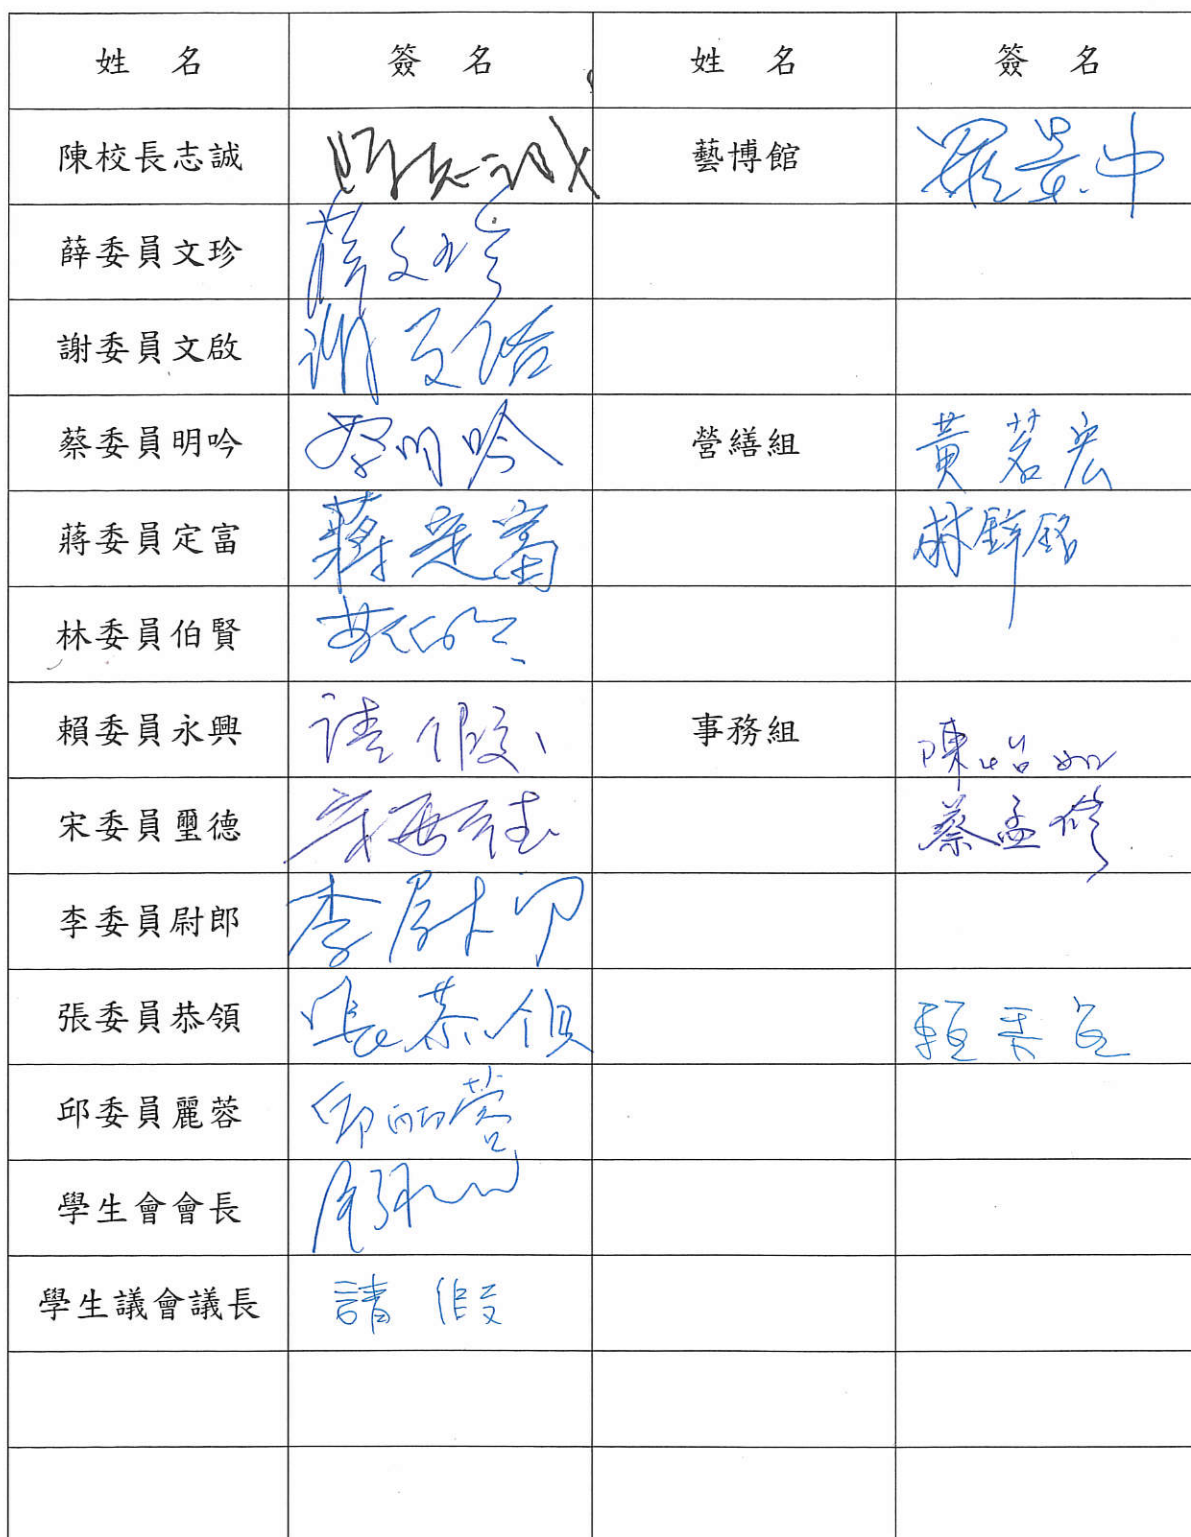 姓 名 簽 名 姓 名 簽 名
陳校長志誠 陳志誠 藝博館 羅景中
薛委員文珍 薛文珍
謝委員文啟 謝文啟
蔡委員明吟 蔡明吟 營繕組 黃茗宏
蔣委員定富 蔣定富 林鋅銘
林委員伯賢
賴委員永興 請假 事務組 陳怡如
宋委員璽德 宋璽德 蔡孟修
李委員尉郎 李尉郎
張委員恭領 張恭領
邱委員麗蓉 邱麗蓉
學生會會長
學生議會議長 請假